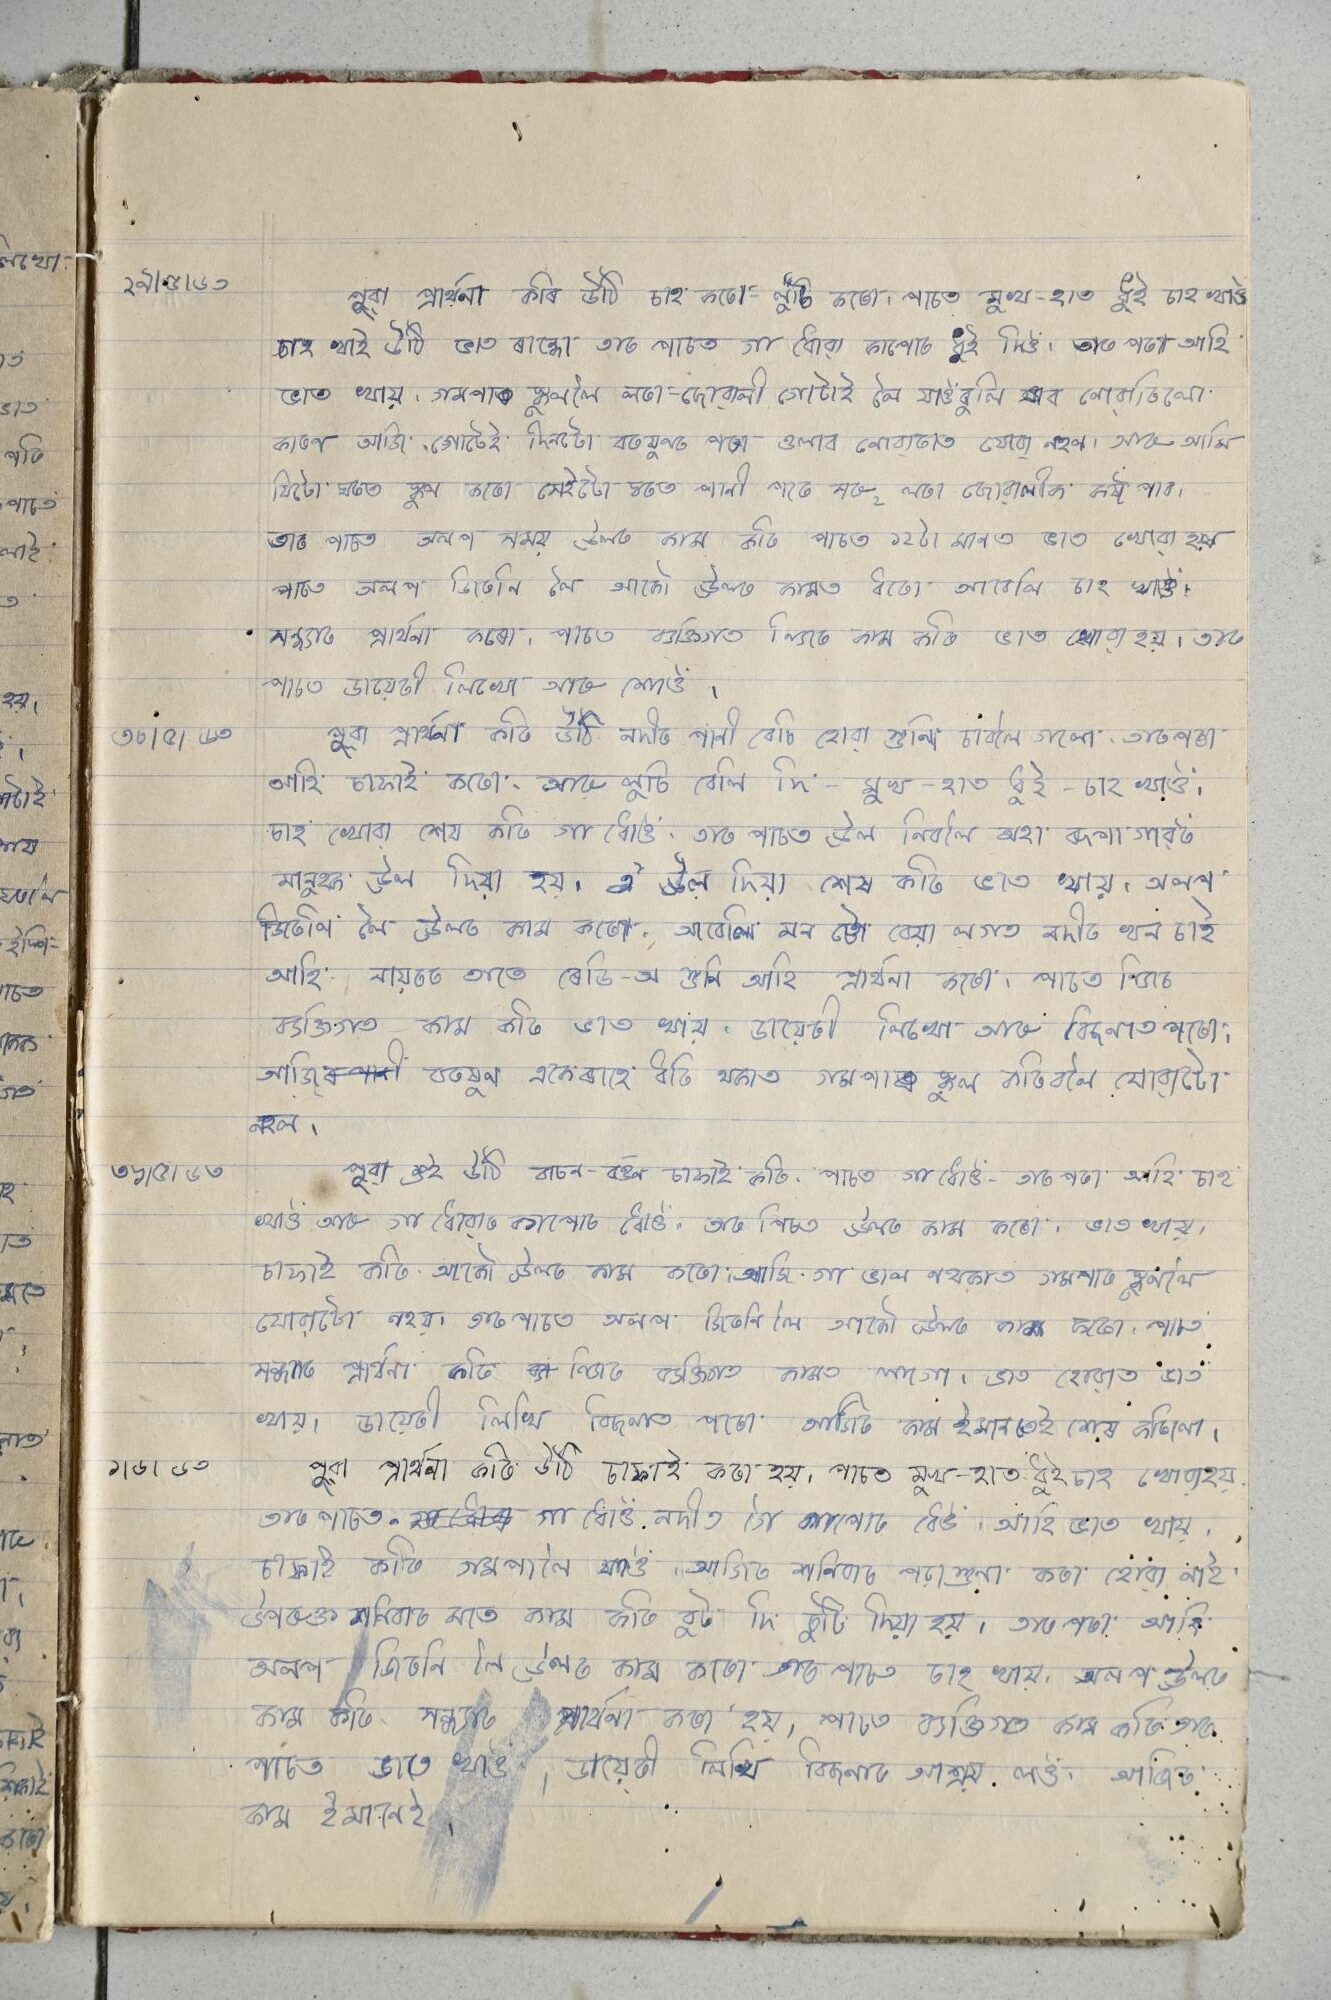 ২৯।৫।৬৩ পুৱা প্ৰাৰ্থনা কৰি উঠি চাহ কৰো- লুচি কৰো. পাচত মুখ-হাত ধুই চাহ খাওঁ
চাহ খাই উঠি ভাত ৰান্ধো তাৰ পাচত গা ধোৱা কাপোৰ ধুই দিওঁ। তাৰ পৰা আহি
ভাত খায়. গমপাৰ স্কুললৈ লৰা-ছোৱালী গোটাই লৈ যাওঁবুলি যাব নোৱাৰিলো
কাৰণ আজি গোটেই দিনটো বৰষুণৰ পৰা ওলাব নোৱাৰাত যোৱা নহল। আৰু আমি
যিটো ঘৰত স্কুল কৰো সেইটো ঘৰত পানী পৰে সৰু২ লৰা ছোৱালীক কষ্ট পাব।
তাৰ পাচত অলপ সময় উলৰ কাম কৰি পাচত ১২টা মানত ভাত খোৱা হয়
পাচত অলপ জিৰনি লৈ আকৌ উলৰ কামত ধৰো আবেলি চাহ খাওঁ.
সন্ধ্যাৰ প্ৰাৰ্থনা কৰো. পাচত ব্যক্তিগত নিজৰ কাম কৰি ভাত খোৱা হয়। তাৰ
পাচত ডায়েৰী লিখো আৰু শোওঁ।
৩০।৫।৬৩ পুৱা প্ৰাৰ্থনা কৰি উঠি নদীৰ পানী বেচি হোৱা শুনি চাবলৈ গলো. তাৰপৰা
আহি চাফাই কৰো. আৰু লুচি বেলি দি - মুখ-হাত ধুই - চাহ খাওঁ.
চাহ খোৱা শেষ কৰি গা ধোওঁ. তাৰ পাচত উল নিবলৈ অহা ৰূপা গাৱৰ
মানুহক উল দিয়া হয়। উল দিয়া শেষ কৰি ভাত খায়. অলপ
জিৰণি লৈ উলৰ কাম কৰো. আবেলি মন টো বেয়া লগত নদীৰ খন চাই
আহি তাতে ৰেডি-অ শুনি আহি প্ৰাৰ্থনা কৰো. পাচত নিজৰ
ব্যক্তিগত কাম কৰি ভাত খায়. ডায়েৰী লিখো আৰু বিছনাত পৰো.
আজি বৰষুণ একেৰাহে ধৰি থকাত গমপাৰ স্কুল কৰিবলৈ যোৱাটো
নহল।
৩১।৫।৬৩ পুৱা শুই উঠি বাচন-বৰ্তন চাফাই কৰি. পাচত গা ধোওঁ- তাৰ পৰা আহি চাহ
খাওঁ আৰু গা ধোৱাৰ কাপোৰ ধোওঁ. তাৰ পিচত উলৰ কাম কৰো. ভাত খায়.
চাফাই কৰি আকৌ উলৰ কাম কৰো. আজি গা ভাল নথকাত গমপাৰ স্কুললৈ
যোৱাটো নহয়. তাৰ পাচত অলপ জিৰনি লৈ আকৌ উলৰ কাম কৰো. পাচত
সন্ধ্যাৰ প্ৰাৰ্থনা কৰি নিজৰ ব্যক্তিগত কামত লাগো. ভাত হোৱাত ভাত
খায়। ডায়েৰী লিখি বিছনাত পৰো আজিৰ কাম ইমানতেই শেষ কৰিলো.
১।৬।৬৩ পুৱা প্ৰাৰ্থনা কৰি উঠি চাফাই কৰা হয়। পাচত মুখ-হাত ধুই চাহ খোৱা হয়.
তাৰ পাচত গা ধোওঁ. নদীত গৈ কাপোৰ ধোওঁ. আহি ভাত খায়.
চাফাই কৰি গমপালৈ যাওঁ. আজিৰ শনিবাৰ পঢ়াশুনা কৰা হোৱা নাই
উপৰুক্ত শনিবাৰ মতে কাম কৰি বুট দি ছুটি দিয়া হয়। তাৰ পৰা আহি
অলপ জিৰনি লৈ উলৰ কাম কৰো তাৰ পাচত চাহ খায়. অলপ উলৰ
কাম কৰি. সন্ধ্যাৰ প্ৰাৰ্থনা কৰা হয়, পাচত ব্যক্তিগত কাম কৰি তাৰ
পাচত ভাত খাওঁ. ডায়েৰী লিখি বিছনাৰ আশ্ৰয় লওঁ. আজিৰ
কাম ইমানেই.